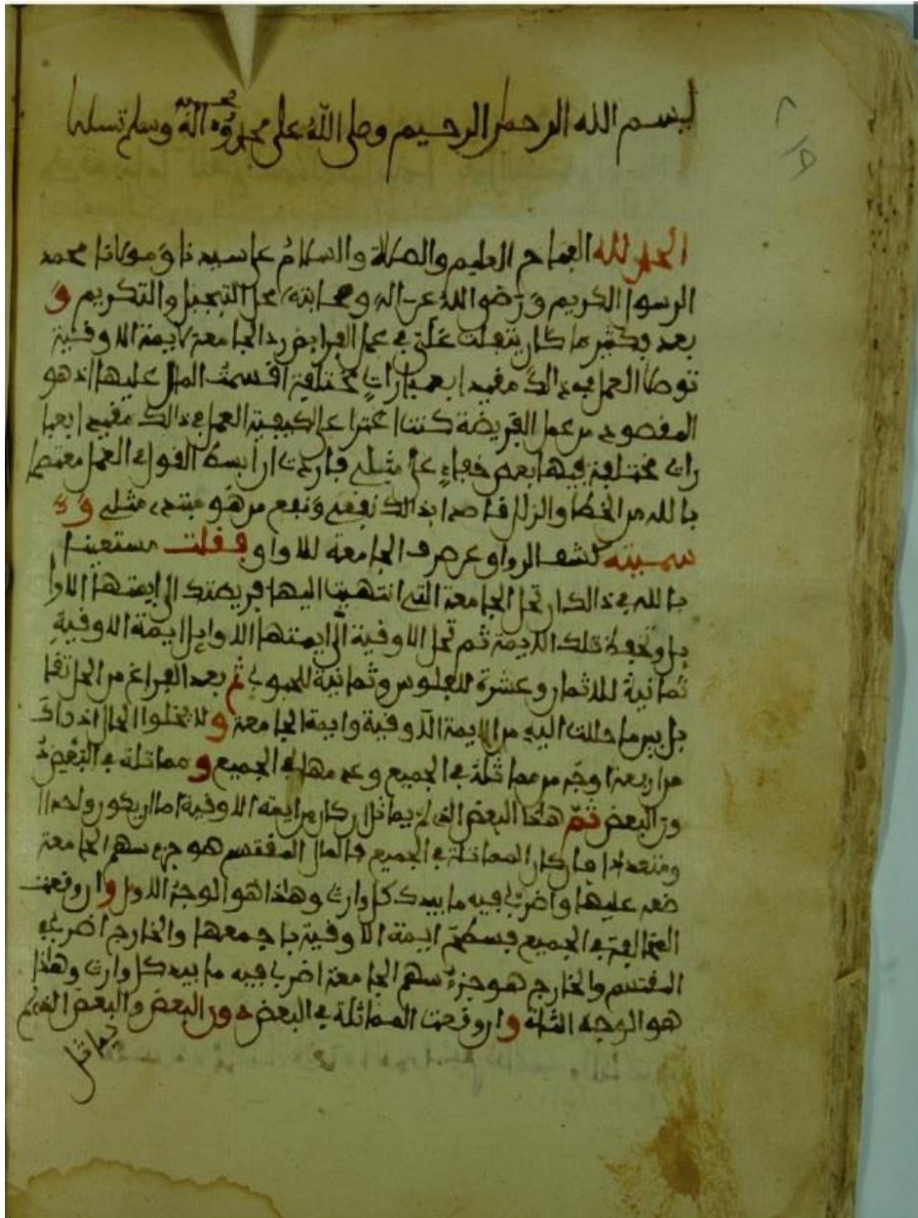 بسم الله الرحمن الرحيم وصلى الله على محمد وآله وصحبه وسلم تسليما
الحمد لله الفتاح العليم والصلاة والسلام على سيدنا ومولانا محمد
الرسول الكريم ورضي الله عن اله وصحابته محل التبجيل والتكريم و
بعد فكثير ما كان يتفلت علي في عمل الفرايض رد الجامعة لايمة الاوقية
توطا العمل في ذالك مفيدا بعبارات مختلفة اقسمت المال عليها اذ هو
المقصود من عمل الفريضة كنت اعثر على كيفية العمل في ذالك مفيدا بعبا
رات مختلفة فيها بعض خفاء على مثلي فاردت ان ابسط القول في العمل معتصما
بالله من الخطا والزلل قاصدا بذالك نفعي ونفع من هو مبتدي مثلي و
سميته كشف الرواق عن صرف الجامعة للاواق فقلت مستعينا
بالله في ذالك ان تحل الجامعة التي انتهيت اليها فريضتك الى ايمتها الاوا
يل وتحفظ تلك الايمة ثم تحل الاوقية الى ايمتها الاوايل ايمة الاوقية
ثمانية للاثمان وعشرة للفلوس وثمانية للحبوب ثم بعد الفراغ من الحل تقا
بل بين ما حللت اليه من الايمة الاوقية وايمة الجامعة ولا يخلوا الحال اذ ذاك
من اربعة اوجه من مماثلة في الجميع وعدمها في الجميع و مماثلة في البعض د
ون البعض ثم هاذا البعض الذي لم يماثل ان كان من ايمة الاوقية اما ان يكون واحدا
ومتعددا فان كان المماثلة في الجميع فالمال المقتسم هو جزء سهم الجامعة
ضعه عليها واضرب فيه ما بيد كل وارث وهاذا هو الوجه الاول وان وقعت
المخالفة في الجميع فسطح ايمة الاوقية باجمعها والخارج اضربه في
المقتسم والخارج هو جزء سهم الجامعة اضرب فيه ما بيد كل وارث وهاذا
هو الوجه الثاني وان وقعت المماثلة في البعض دون البعض والبعض الذي لم
يماثل